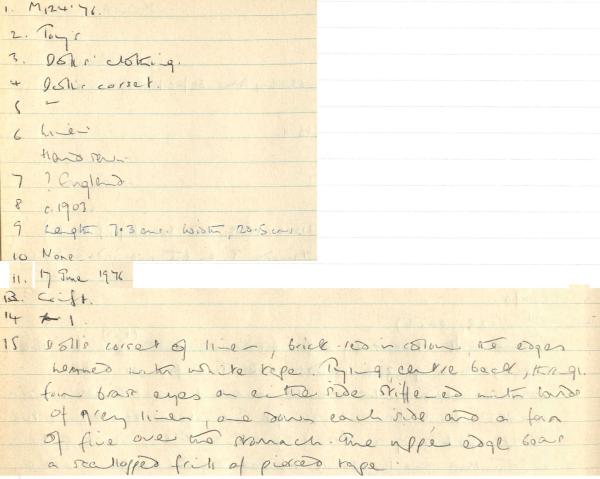 1. M124.76.
2. Toys
3. Dolls' clothing.
4 Dolls corset.
5 -
6 Linen
Hand sewn.
7 ? England.
8 c.1903
9 Length, 7.3 cms. Width, 20.5 cms.
10 None
11. 17 June 1976
13. Gift.
14 1.
15 Dolls corset of linen, brick-red in colour, the edges
hemmed with white tape. Tying, centre back, through
four brass eyes on either side, stiffened with bands
of grey linen, one down each side, and a fan
of five over the stomach. The upper edge bears
a scalloped frill of pierced tape.